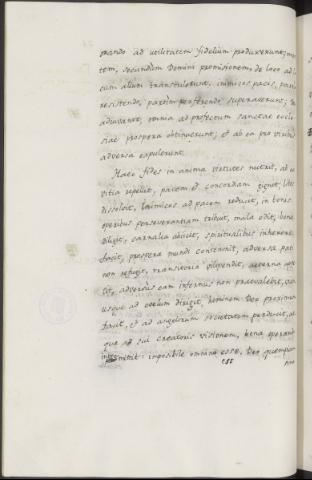 rando ad utilitatem fidelium produxerunt; mon
tem, secundum Domini promissionem, de loco ad lo
cum alium transtulerunt, inimicos pacis, partim
resistendo, partim perferendo superaverunt;
adiuvante, omnia ad profectum sanctae eccle
siae prospera obtinuerunt, et ab ea pro viribus
adversa expulerunt.
Haec fides in anima virtutes nutrit, ab ea
vitia repellit, pacem et concordiam gignit, lites
dissolvit, inimicos ad pacem reducit, in bonis
operibus perseverantiam tribuit, mala odit, bona
diligit, carnalia abicit, spiritualibus inhaerere
facit, prospera mundi contemnit, adversa pati
non refugit, transitoria vilipendit, aeterna
adversus eam infernus non praevalebit,
usque ad coelum dirigit, hominem Deo proximum
facit, et ad angelorum societatem perducit, at
que ad sui creatoris visionem, bene sperantem
intromittit: imposibile omnino esse, Deo quemquam
est